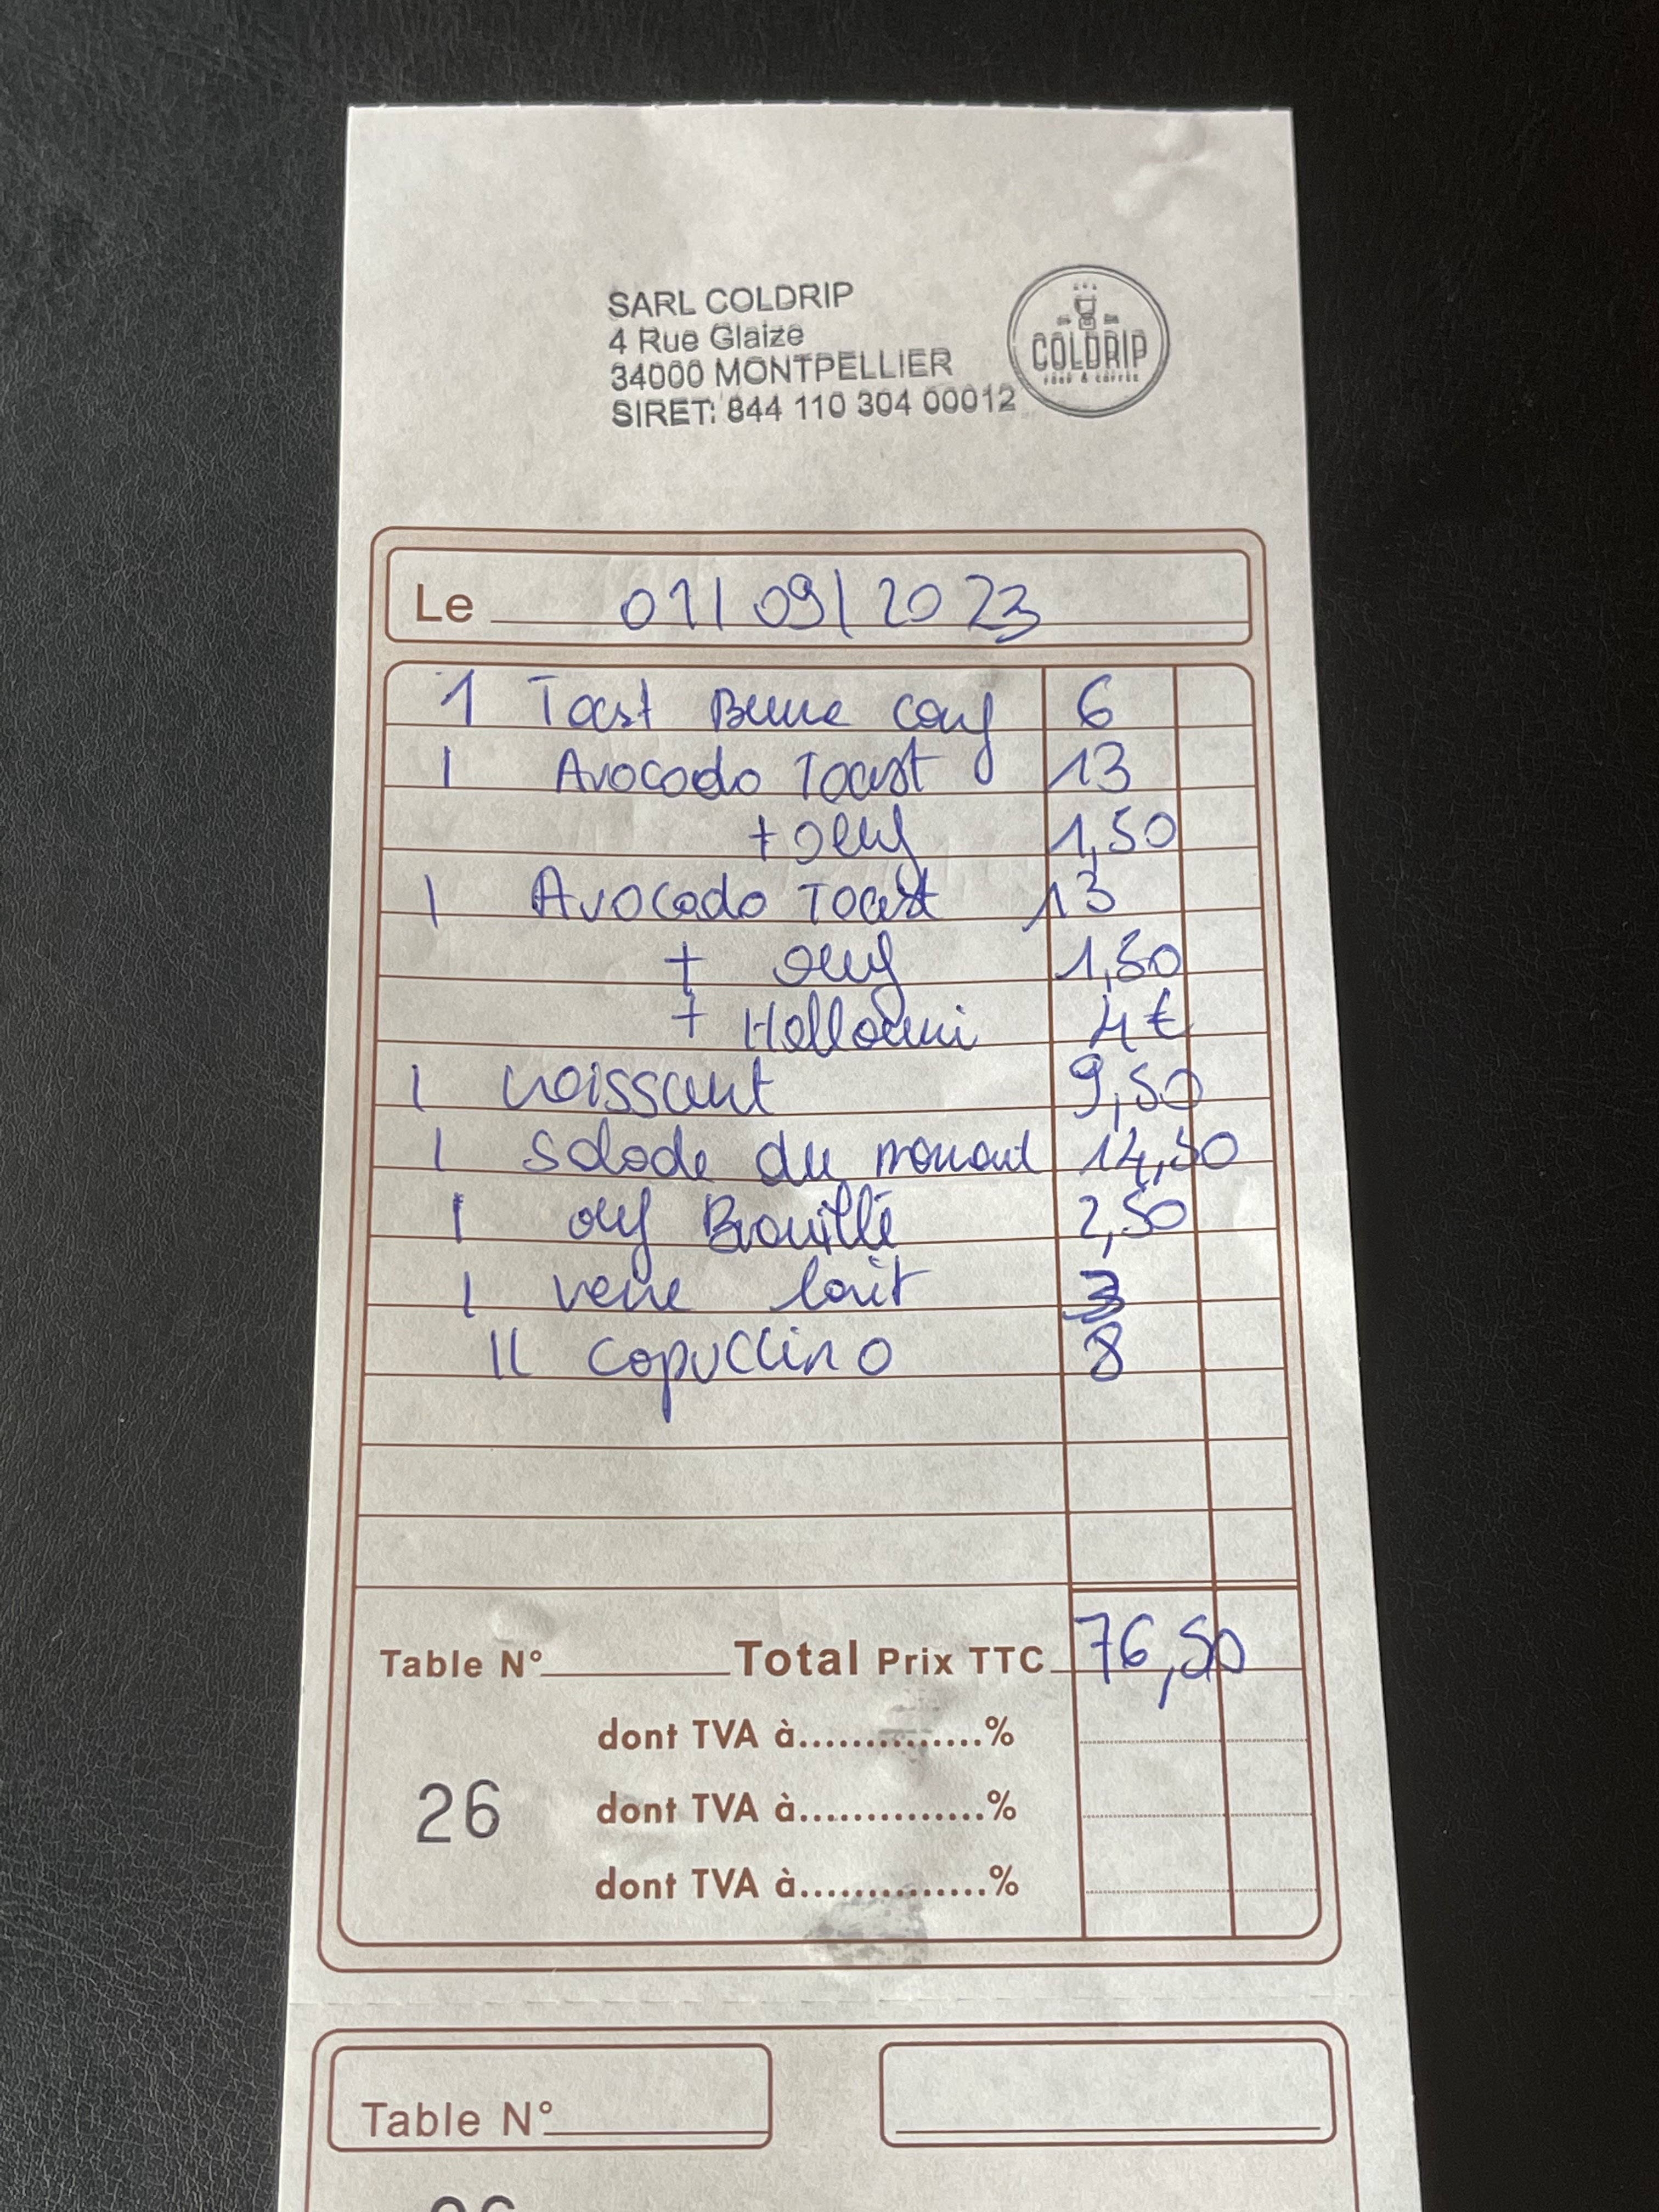 SARL COLDRIP
4 Rue Glaize
34000 MONTPELLIER
SIRET: 844 110 304 00012
COLDRIP
FOOD & COFFEE
Le 01/09/2023
1 Toast Beurre conf 6
1 Avocado Toast 13
+ oeuf 1,50
1 Avocado Toast 13
+ oeuf 1,50
+ Halloumi 4€
1 croissant 9,50
1 Salade du moment 14,50
1 oeuf Brouillé 2,50
1 verre lait 3
11 Capuccino 8
Table N° Total Prix TTC 76,50
dont TVA à..............%
26 dont TVA à..............%
dont TVA à..............%
Table N°